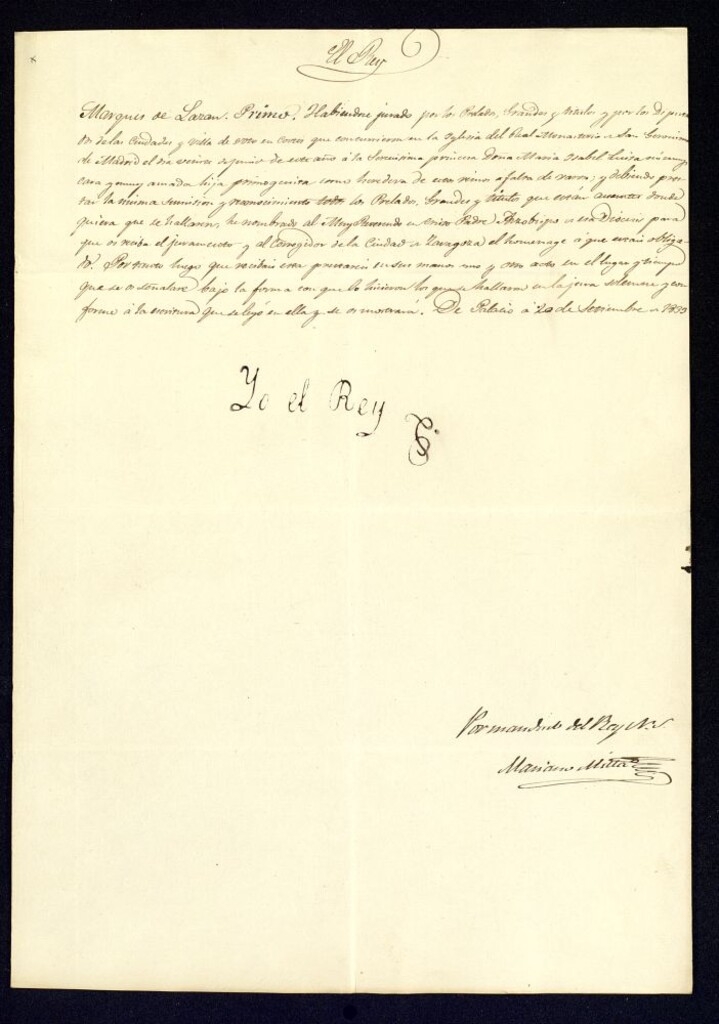 El Rey
Marques de Lazan. Primo. Habiendose jurado por los Prelados, Grandes y titulos y por los Diputa
dos de las Ciudades y villa de voto en cortes que concurrieron en la Iglesia del Real Monasterio de San Geronimo
de Madrid el dia veinte de junio de este año á la Serenisima princesa Doña María Isabel Luisa mi muy
cara y muy amada hija primogenita como heredera de estos reinos á falta de varon; y debiendo pres
tar la misma sumision y reconocimiento todos los Prelados, Grandes y titulos que están ausentes donde
quiera que se hallaren, he nombrado al Muy Reverendo en Cristo Padre Arzobispo de esa Diocesis para
que os reciba el juramento y al Corregidor de la Ciudad de Zaragoza el homenage á que estais obliga
do. Por tanto luego que recibais esta prestareis en sus manos uno y otro acto en el lugar y tiempo
que se os señalare bajo la forma con que lo hicieron los que se hallaron en la jura solemne y con
forme á la escritura que se leyó en ella y se os mostrará. De Palacio á 20 de Setiembre de 1833
Yo el Rey
Por mandado del Rey N. S.
Mariano Milla